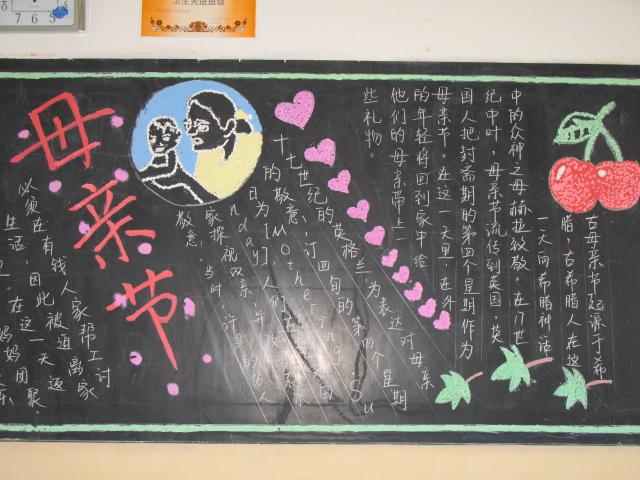 卫生先进班级
8 7 6 5
母亲节
古母亲节起源于希
腊,古希腊人在这
一天向希腊神话
中的众神之母赫拉致敬。在17世
纪中叶,母亲节流传到英国,英
国人把封斋期的第四个星期作为
母亲节。在这一天里,在外
的年轻将回到家中给
他们的母亲带上一
些礼物。
十七世纪的英格兰为表达对母亲
的敬意,订四旬的第四个星期
日为[Mothering Su
nday]人们在
家探视双亲,并
敬意。当时许多的穷人
必须在有钱人家帮工讨
生活,因此被迫离家
在这一天返
妈妈团聚